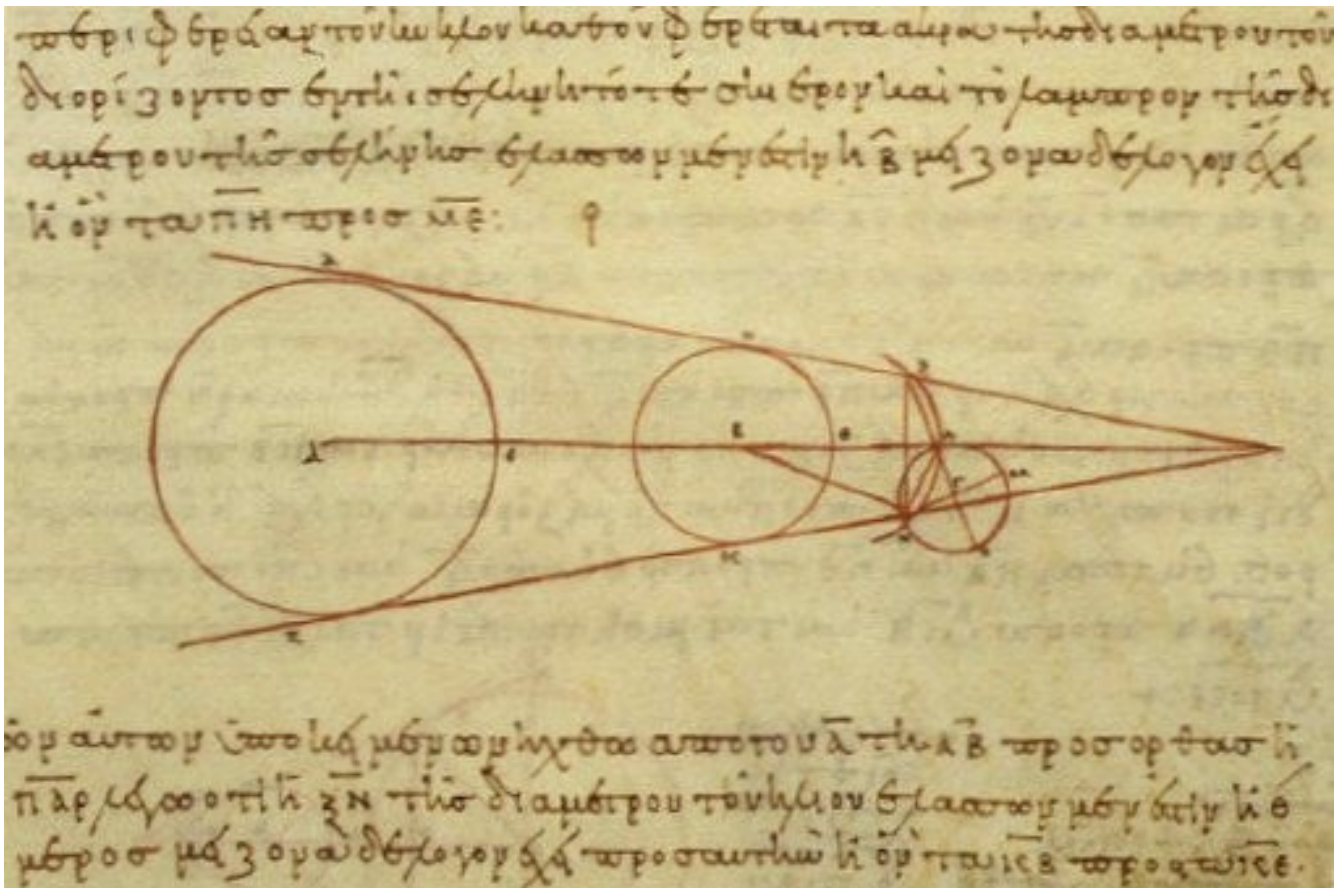 περιφερείας τοῦ κύκλου καθ ὃν φέρεται τα ακρα τῆς διαμέτρου τοῦ
διορίζοντος ἐν τῆι σελήνηι τό τε σκιερον και τὸ λαμπρον τῆς δι
αμέτρου τῆς σελήνης ελασσων μέν ἐστιν ἢ β̄ μείζονα δὲ λογον ἔχει
ἢ ὃν τα π̄η̄ προσ μ̄ε̄:
Β
Θ
Κ
Μ
Ν
τῶν αὐτων ὑποκειμένων ηχθω απο τοῦ Α̅ τῆι Α̅Β̅ προσ ορθασ ἡ
Π̅Α̅Ρ̅ λέγω οτι ἡ Ξ̅Ν̅ τῆσ διαμέτρου τοῦ ἡλίου ελασσων μέν ἐστιν ἢ θ
μέροσ μείζονα δὲ λογον ἔχει προσ αυτην ἢ ὃν τα κ̅β̅ προσ